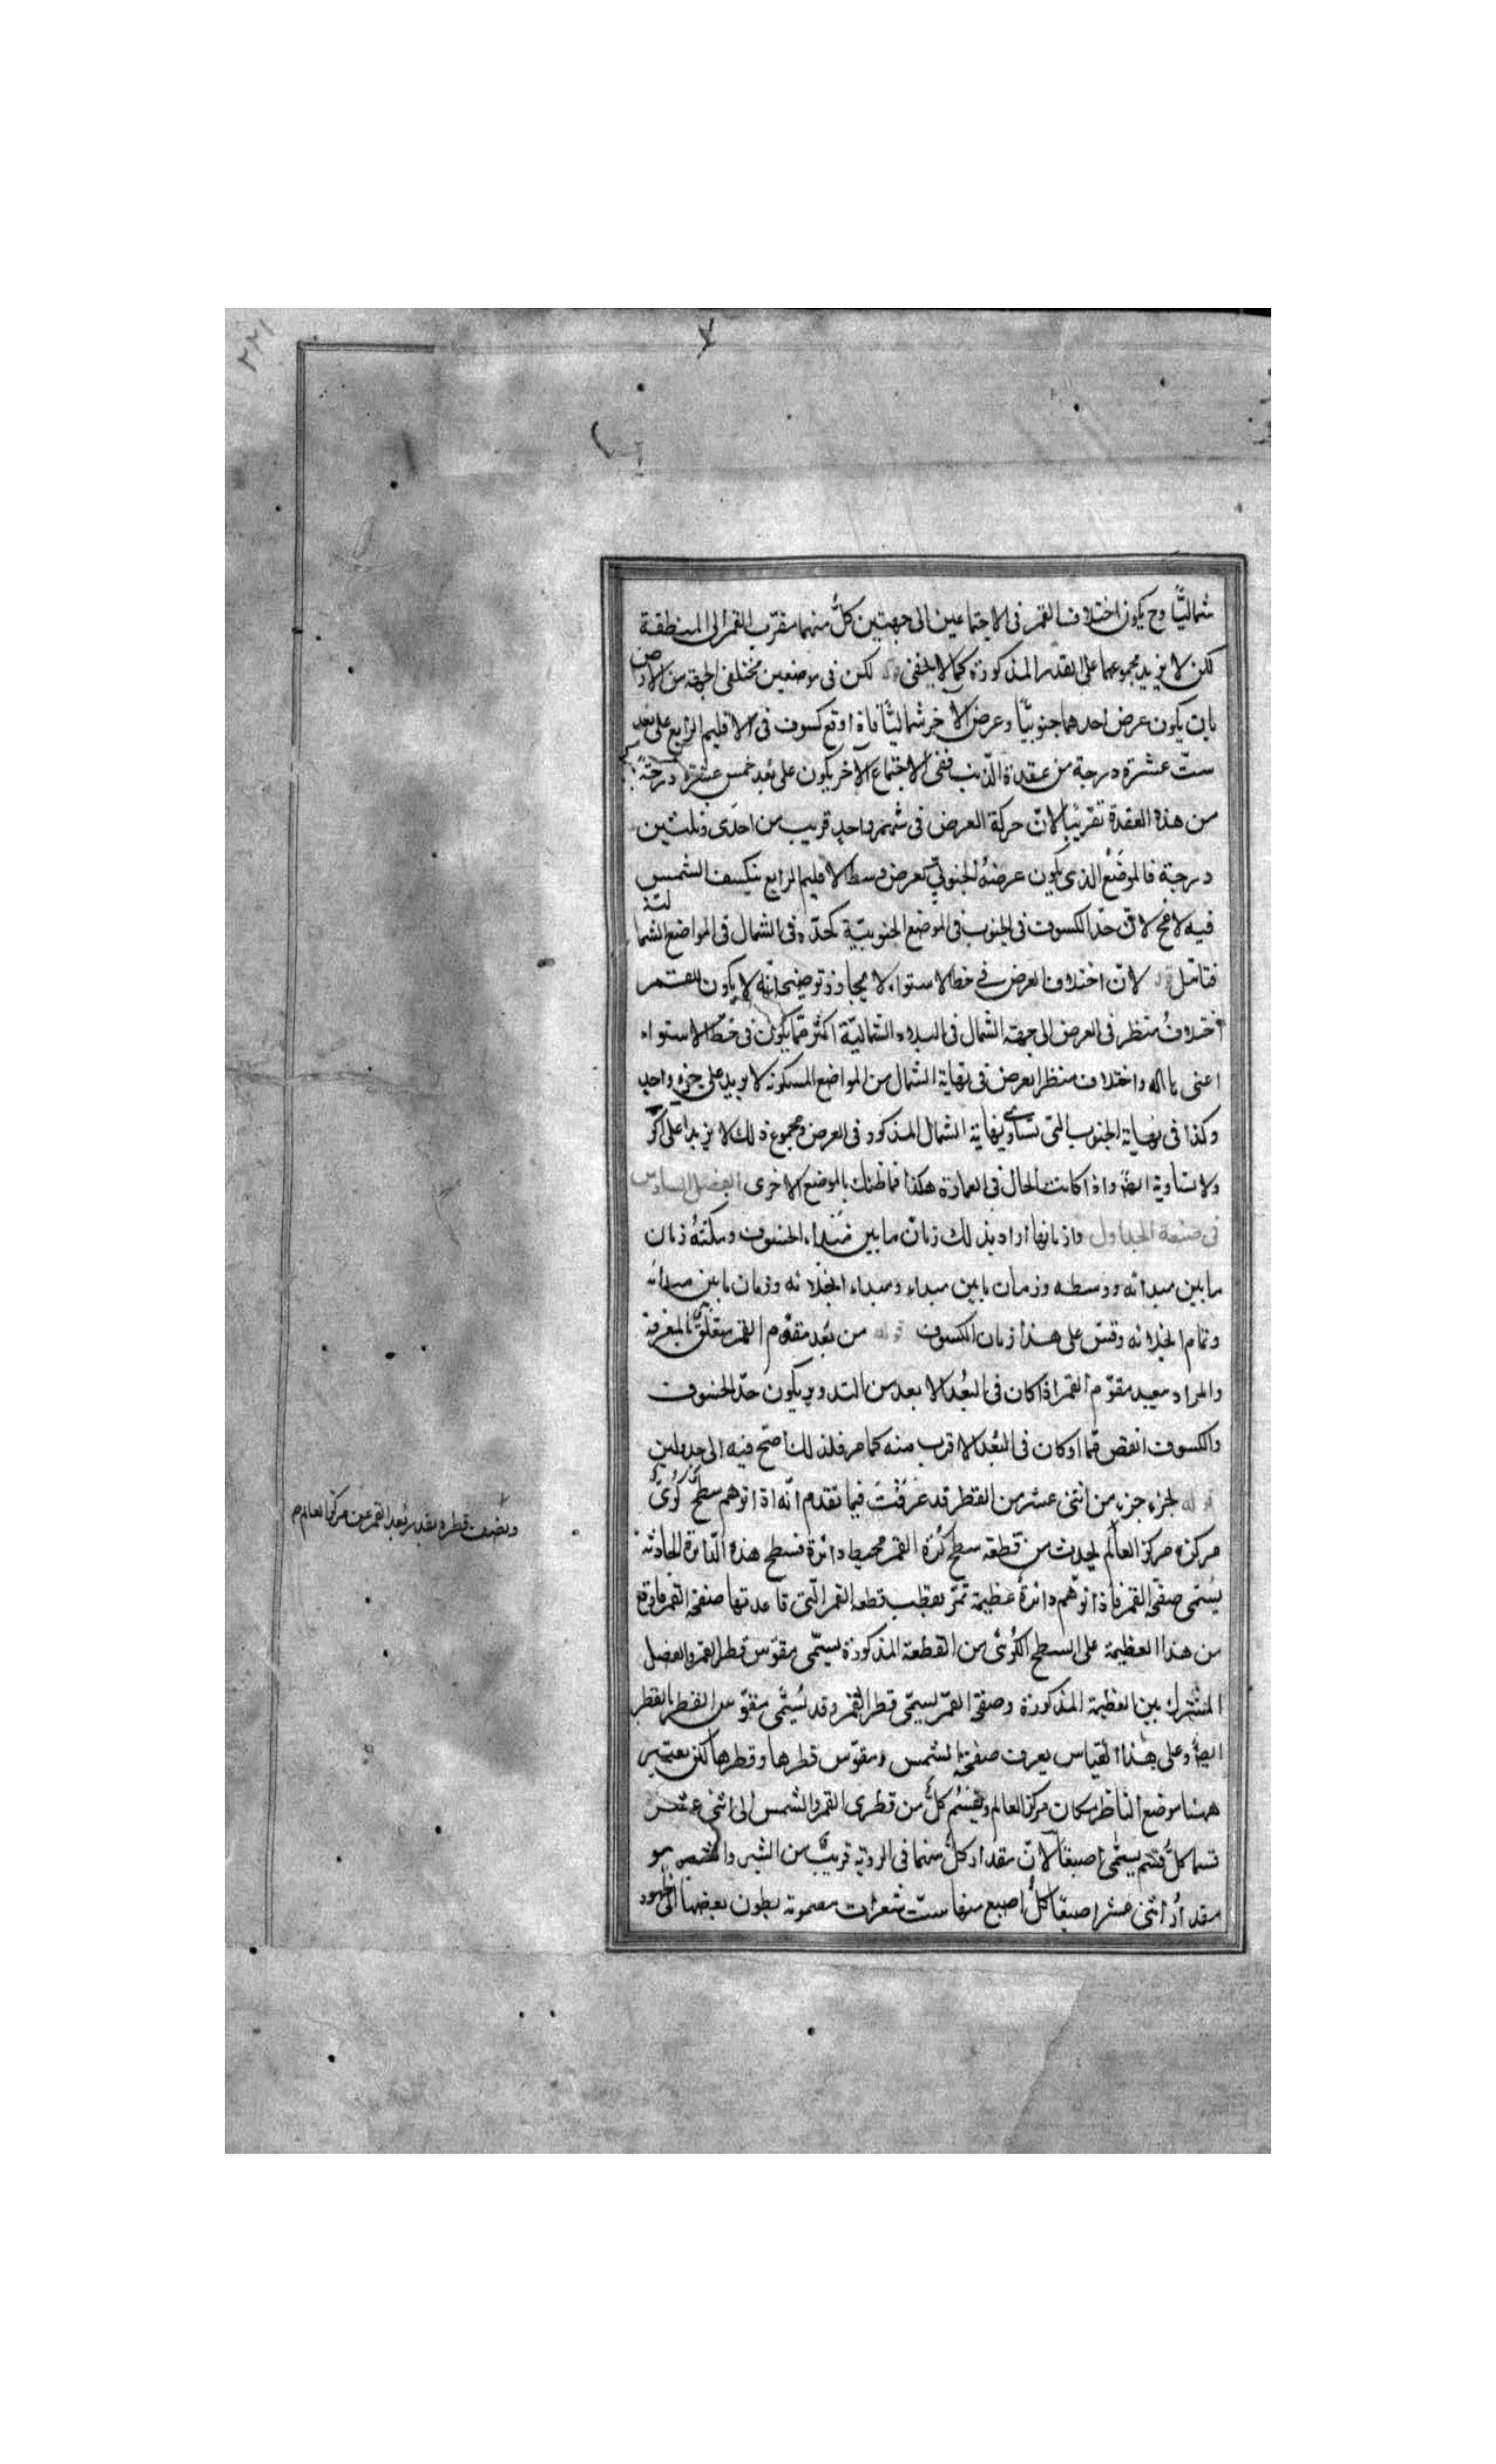 شماليّاً وح يكون اختلاف القمر فى الاجتماعين الى جهتين كلّ منهما مقرّب القمر الى المنطقة
لكن لا يزيد مجموعهما على القدر المذكورة كما لا يخفى قوله لكن فى موضعين مختلفى الجهة من الارض
بان يكون عرض احدهما جنوبيّاً وعرض الاخر شماليّاً فاذا وقع كسوف فى الاقليم الرابع على بعد
ستّ عشرة درجة من عقدة الذنب ففى الاجتماع الآخر يكون على بُعد خمس عشرة درجة
من هذه العقدة تقريبا لانّ حركة العرض فى شهر واحد قريب من احدى وثلثين
درجة فالموضع الذى يكون عرضهُ الجنوبىّ كعرض وسط الاقليم الرابع ينكسف الشمس
فيه لا مح لانّ حدّ الكسوف فى الجنوب فى الموضع الجنوبيّة كحدّه فى الشمال فى المواضع الشمالية
فتامّل قوله لانّ اختلاف العرض فى خط الاستواء لا يجاوز توضيحه انّه لا يكون للقمر
اختلافُ منظر فى العرض الى جهة الشمال فى البلاد الشماليّة اكثر ممّا يكون فى خطّ الاستواء
اعنى واختلاف منظر العرض فى نهاية الشمال من المواضع المسكونه لا يزيد على جزء واحد
وكذا فى نهاية الجنوب التى تساوى نهاية الشمال المذكور فى العرض ومجموع ذلك لا يزيد على
ولا تساوية ايضاً واذا كانت الحال فى العمارة هكذا فما ظنك بالموضع الاخرى الفصل السادس
فى صنعة الجداول وازمانها اراد بذلك زمان ما بين مبداء الخسوف ومكثهُ زمان
ما بين مبدائه ووسطه وزمان ما بين مبداء ومبداء انجلائه وزمان ما بين مبدائه
وتمام انجلائه وقس على هذا زمان الكسوف قوله من بُعد مقوّم القمر متعلّق بالمعرفة
والمراد ببعيد مقوّم القمر اذا كان فى البُعد الابعد من التدوير يكون حدّ الخسوف
والكسوف انقص مما اذا كان فى البُعد الاقرب منه كما مر فلذلك احتيج فيه الى جدولين
قوله لجزء جزء من اثنى عشر من القطر قد عرفتَ فيما تقدم انّه اذا توهم سطح كُرىّ
مركزه مركز العالم يحدث من قطعه سطح كرة القمر محيط دائرة فسطح هذه الدائرة الحادثة
يُسمّى صفحة القمر فاذا توهّم دائرة عظيمة تمرّ بقطب قطعه القمر التى قاعدتها صفحة القمر فما وقع
من هذا العظيمة على السطح الكُرىّ من القطعة المذكورة يسمّى مقوّس قطر القمر والفصل
المشترك بين العظيمة المذكورة وصفحة القمر يسمّى قطر القمر وقد يُسمّى مقوّس القطر بالقطر
ايضاً وعلى هذا القياس يعرف صفحة الشمس ومقوّس قطرها وقطرها لكن يعتبر
ههنا موضع الناظر مكان مركز العالم ويُقسم كلٌّ من قطرى القمر والشمس الى اثنى عشر
قسما كلُّ قسم يسمّى اصبعاً لانّ مقدار كلّ منهما فى الروية قريبٌ من الشبر والشبر هو
مقدار اثنى عشر اصبعاً كلُّ اصبع منها ستّ شعرات مضمومة بطون بعضها الى ظهور
ونصف قطره بقدر بُعد القمر عن مركز العالم م
٢٢١